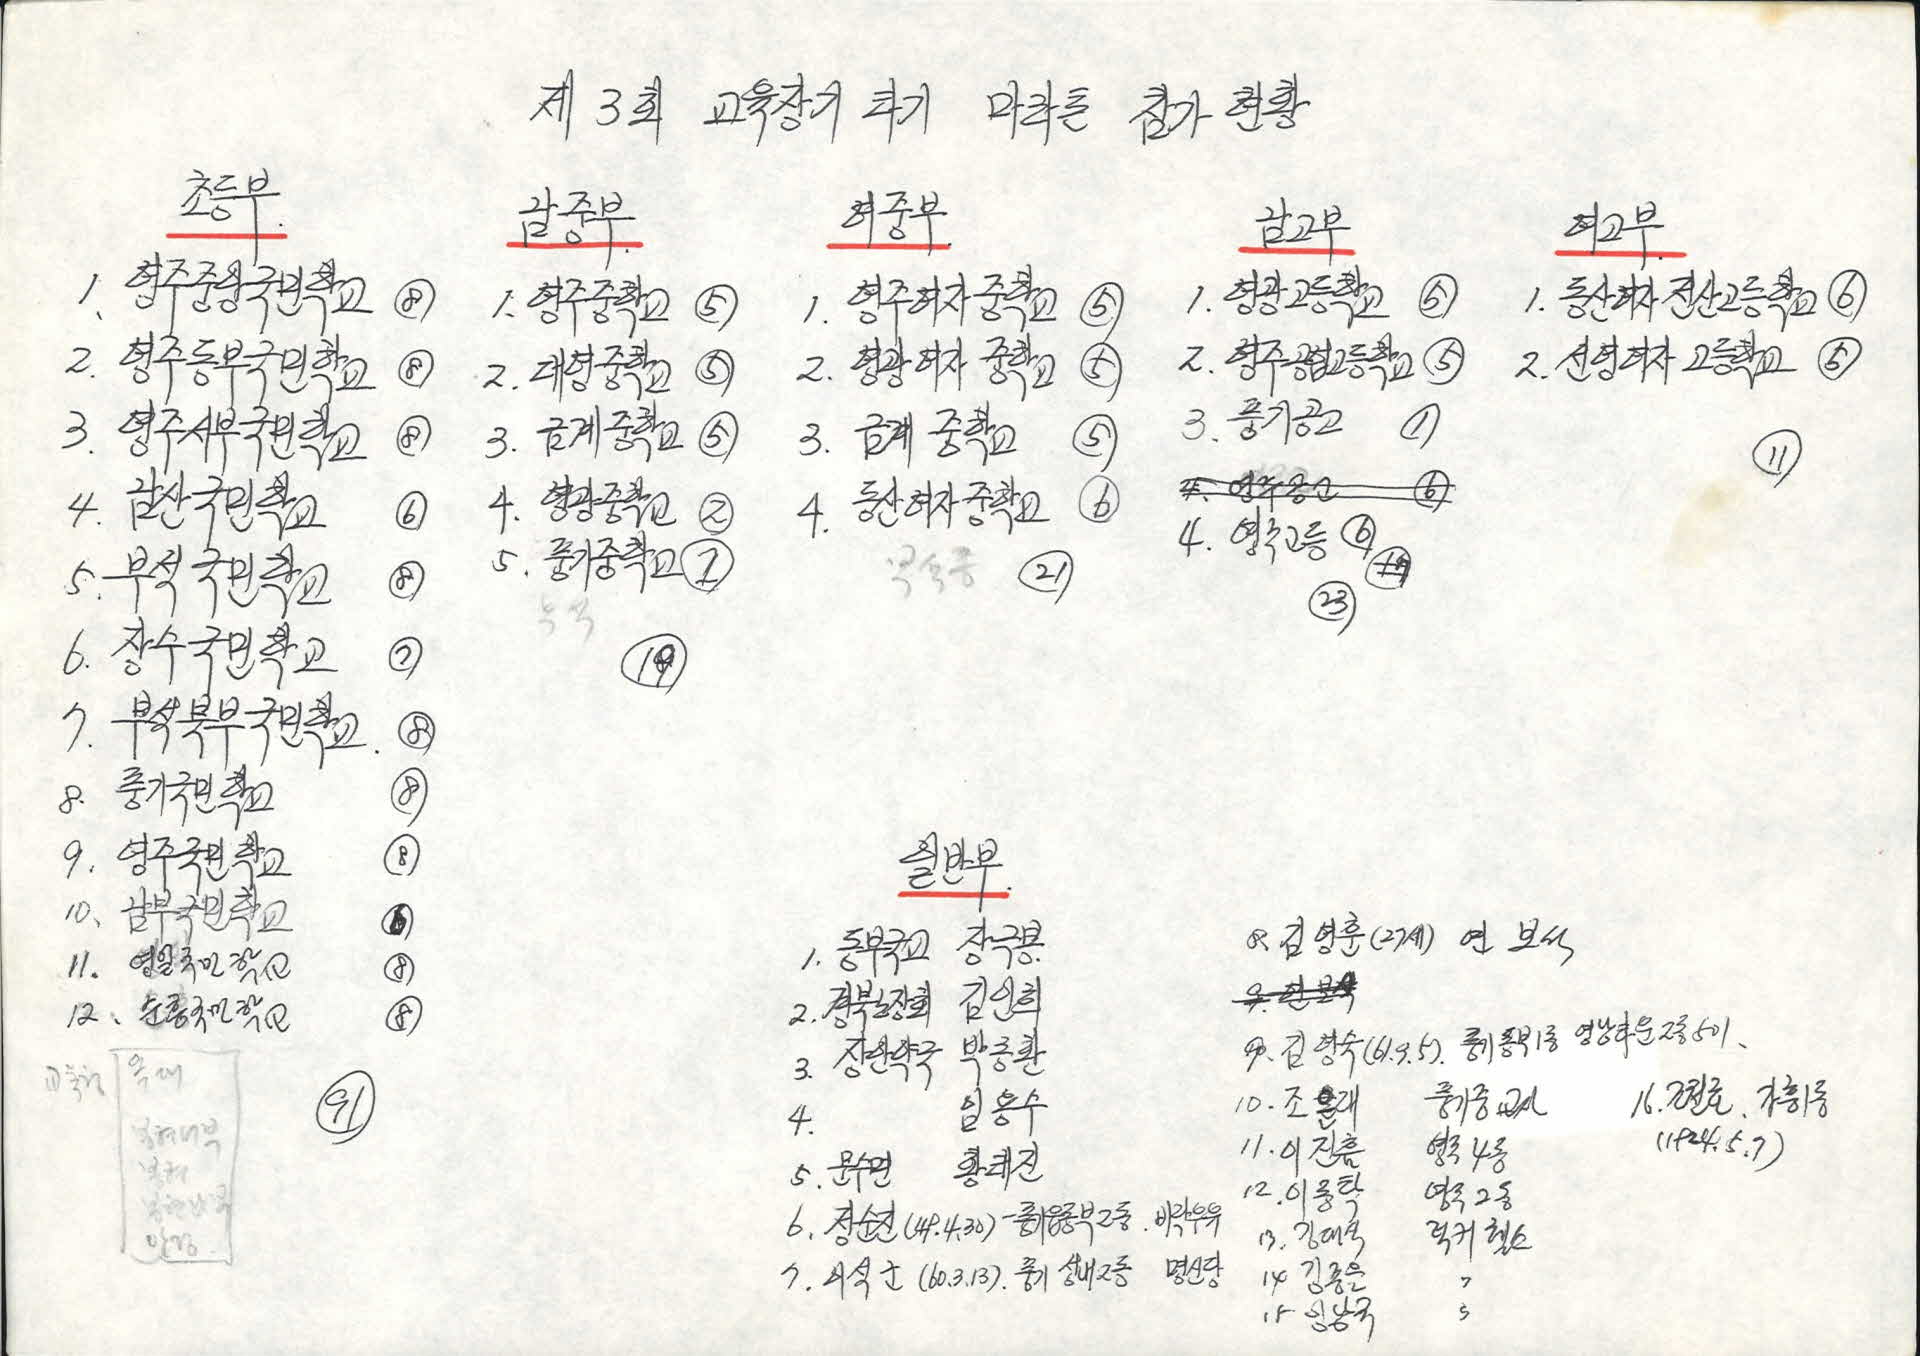 제 3회 교육장기 타기 마라톤 참가 현황
초등부.
1. 영주중앙국민학교 ⑧
2. 영주동부국민학교 ⑧
3. 영주서부국민학교 ⑧
4. 남산국민학교 ⑥
5. 부석국민학교 ⑧
6. 장수국민학교 ⑦
7. 부석북부국민학교. ⑧
8. 풍기국민학교 ⑧
9. 영주국민학교 ⑧
10. 남부국민학교 ⑥
11. 영일국민학교 ⑧
12. 순흥국민학교 ⑧
91
교육청
남중부.
1. 영주중학교 ⑤
2. 대영중학교 ⑤
3. 금계중학교 ⑤
4. 영광중학교 ②
5. 풍기중학교 ①
19
여중부.
1. 영주여자중학교 ⑤
2. 영광여자중학교 ⑤
3. 금계중학교 ⑤
4. 동산여자중학교 ⑥
21
남고부
1. 영광고등학교 ⑤
2. 영주공업고등학교 ⑤
3. 풍기공고 ①
4. 영주고등 ⑥
23
여고부.
1. 동산여자전산고등학교 ⑥
2. 선영여자고등학교 ⑤
11
일반부.
1. 동부국교 장극봉
2. 경북노장회 김인희
3. 장안약국 박종환
4. 임용수
5. 문수면 황태진
6. 정순진 (49.4.30) - 풍기읍동부2동. 바락우유
7. 이석군 (60.3.13). 풍기 성내2동 명산당
8. 김영훈 (27세) 연보석
9. 김영숙 (61.9.5). 풍기동부1동 영남타운 2동 501.
10. 조을래 풍기중교사
11. 이진흠 영주4동
12. 이종탁 영주2동
13. 김대식 럭키헬스
14 김종은 〃
15 임남국 〃
16. 가흥1동
(1924.5.7)